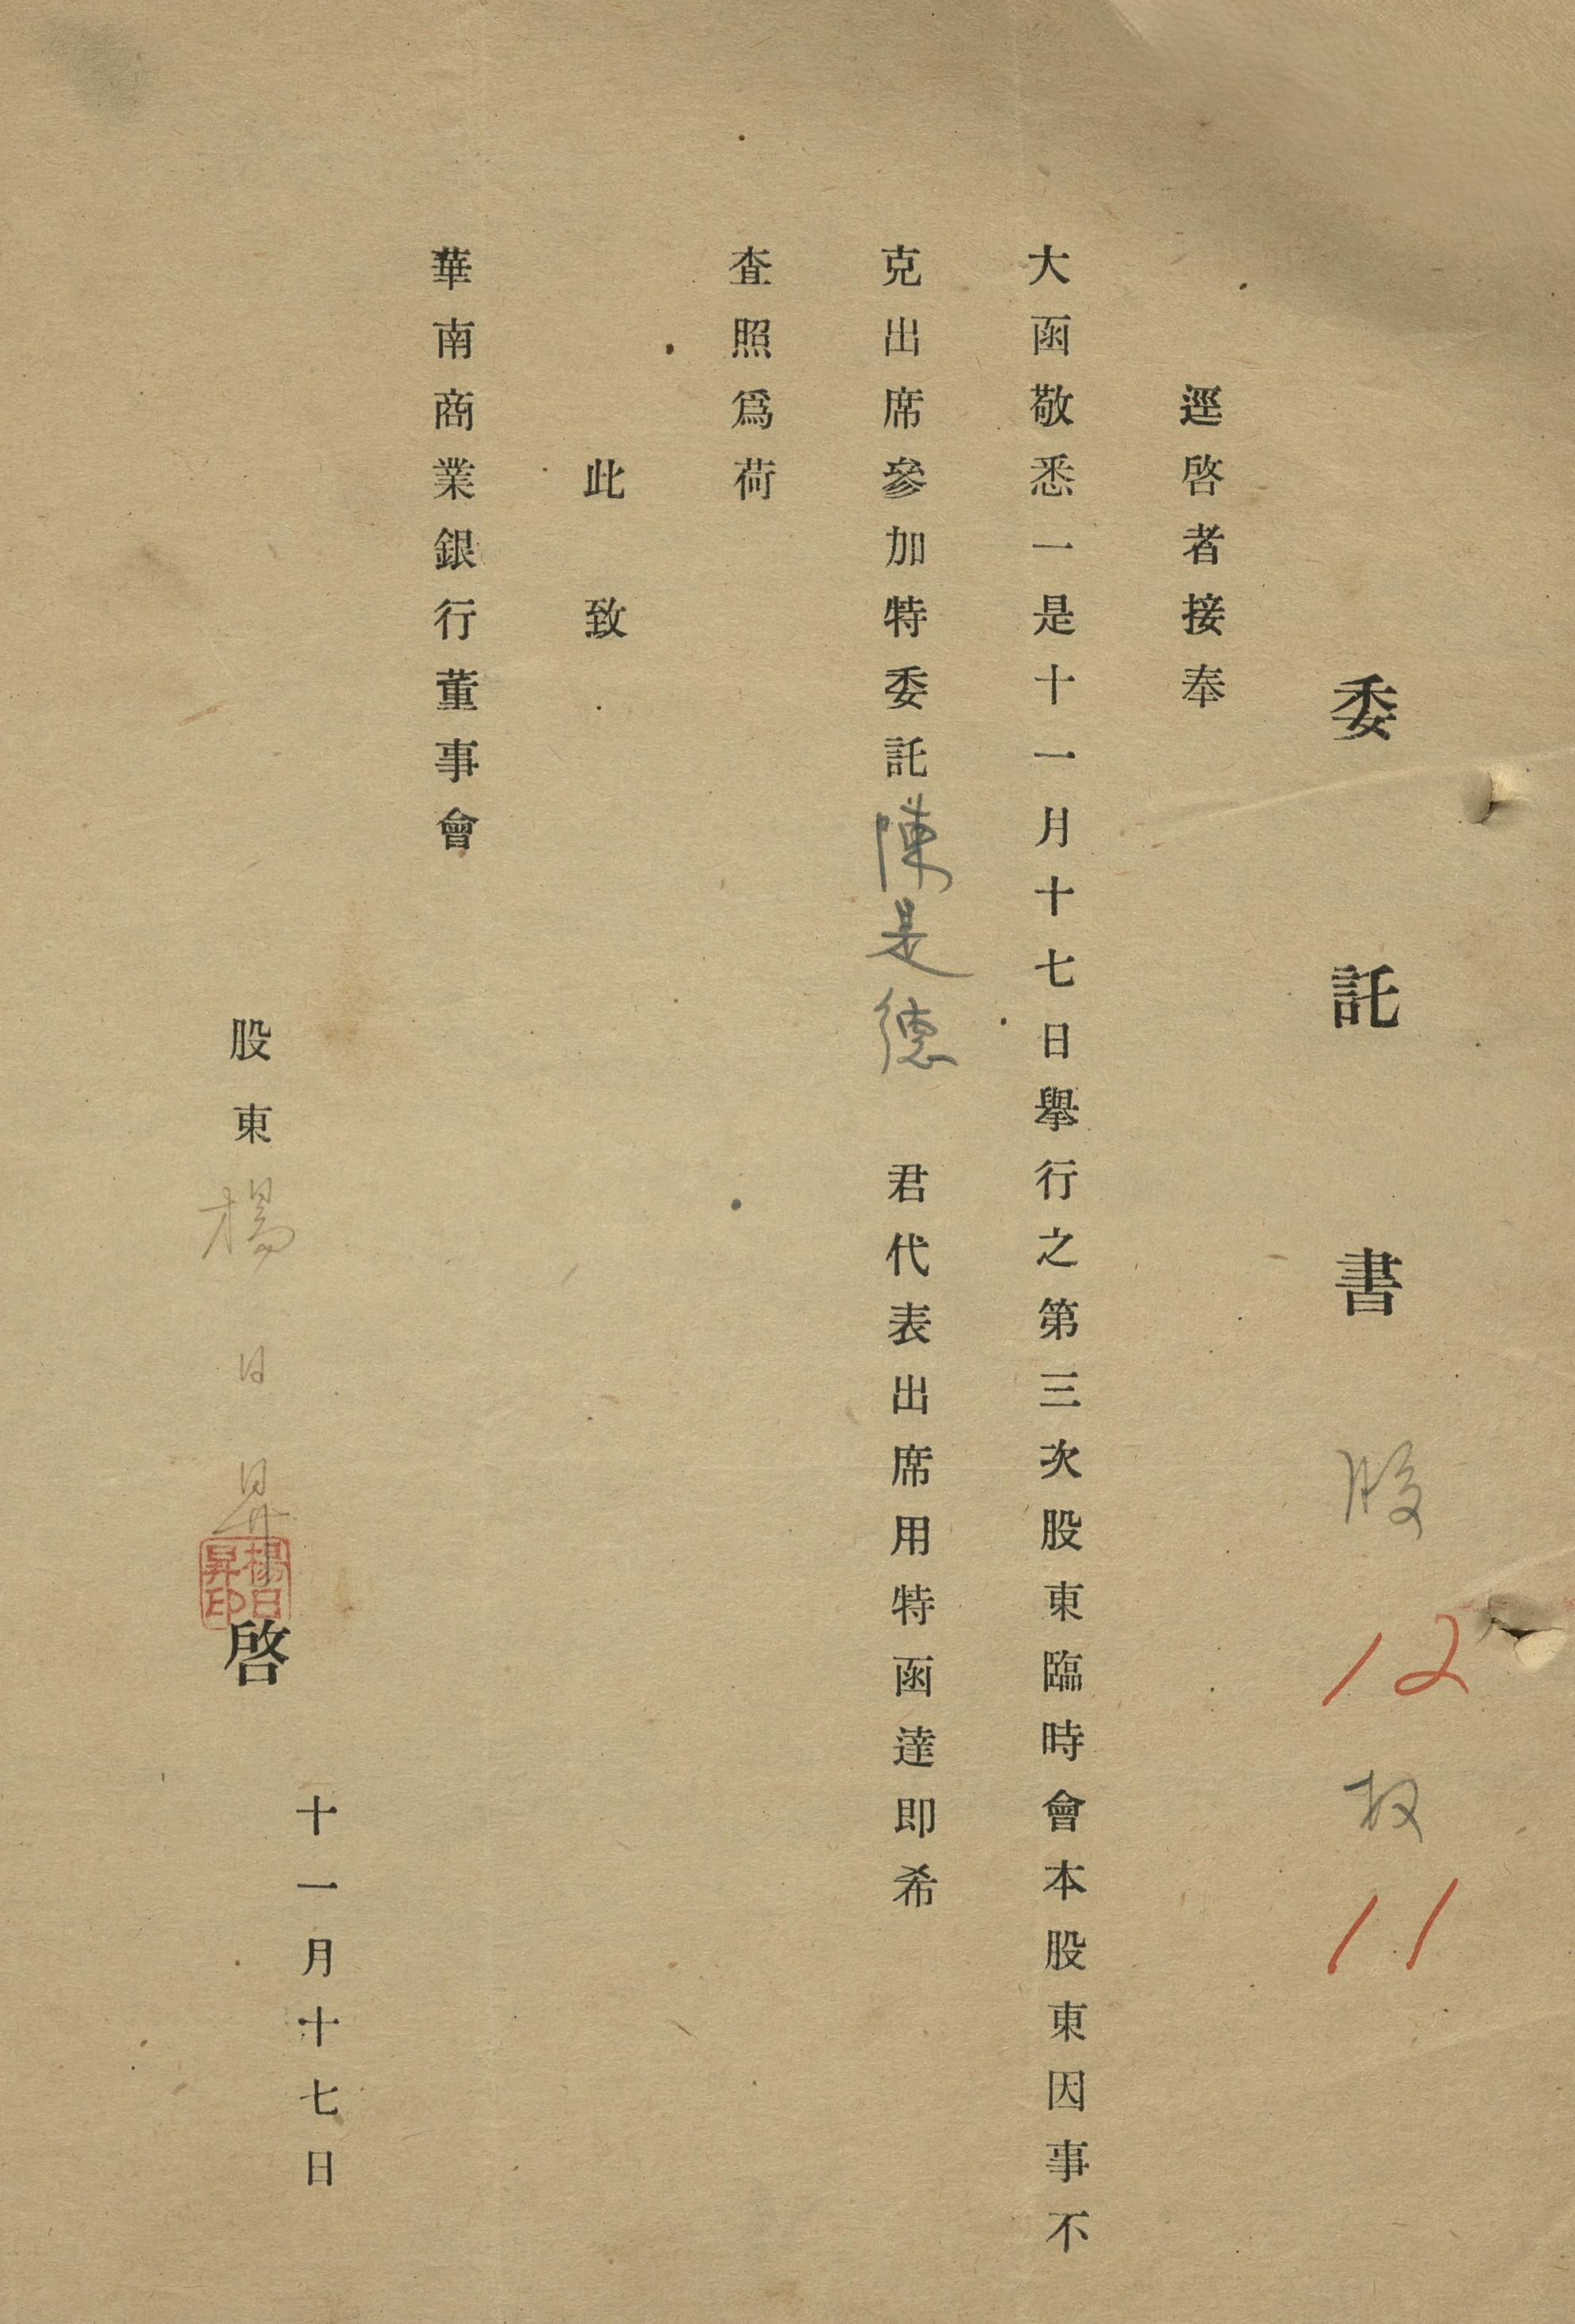 委託書 股 12 权 11
逕啓者接奉
大函敬悉一是十一月十七日舉行之第三次股東臨時會本股東因事不
克出席參加特委託陳是德 君代表出席用特函達即希
查照爲荷
此致
華南商業銀行董事會
股東楊日昇 啓
楊日昇印
十一月十七日